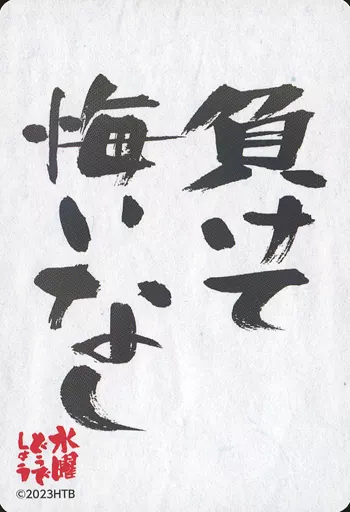 負けて
悔いなし
水曜
どうで
しょう
©2023HTB